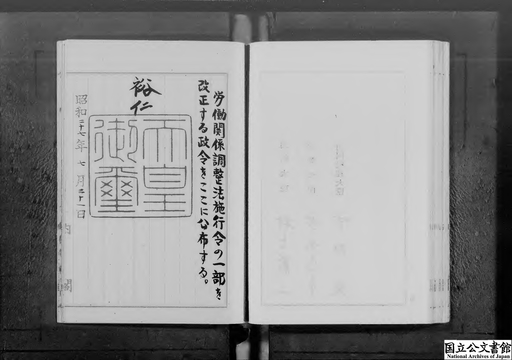 労働関係調整法施行令の一部を
改正する政令をここに公布する。
裕仁
天皇
御璽
昭和二十七年七月三十一日
内閣
国立公文書館
National Archives of Japan